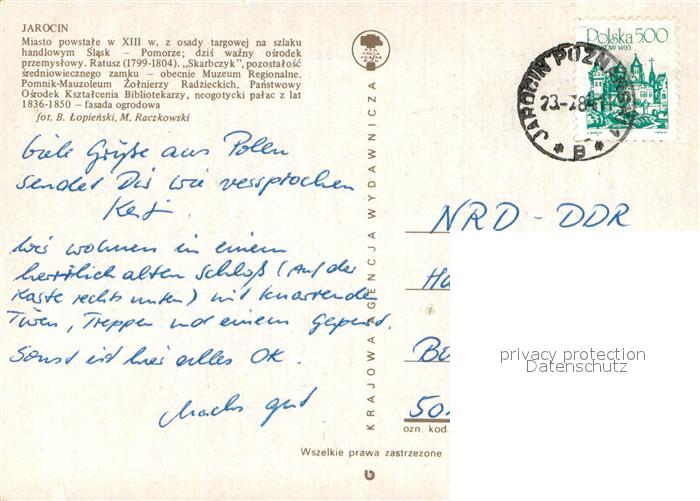 JAROCIN
Miasto powstałe w XIII w. z osady targowej na szlaku
handlowym Śląsk – Pomorze; dziś ważny ośrodek
przemysłowy. Ratusz (1799-1804). „Skarbczyk”, pozostałość
średniowiecznego zamku – obecnie Muzeum Regionalne.
Pomnik-Mauzoleum Żołnierzy Radzieckich. Państwowy
Ośrodek Kształcenia Bibliotekarzy, neogotycki pałac z lat
1836-1850 – fasada ogrodowa
fot. B. Łopieński, M. Raczkowski
Viele Grüße aus Polen
sendet Dir wie versprochen
Wir wohnen in einem
herrlich alten Schloß (Auf der
Karte rechts unten) mit knarrenden
Türen, Treppen und einem Gespenst.
Sonst ist hier alles OK.
Machs gut
KRAJOWA AGENCJA WYDAWNICZA
Polska 500
KRAKÓW 1493
JAROCIN POZNAŃSKI 1
* B *
NRD - DDR
Ha
Be
50
ozn. kod.
Wszelkie prawa zastrzeżone
privacy protection
Datenschutz